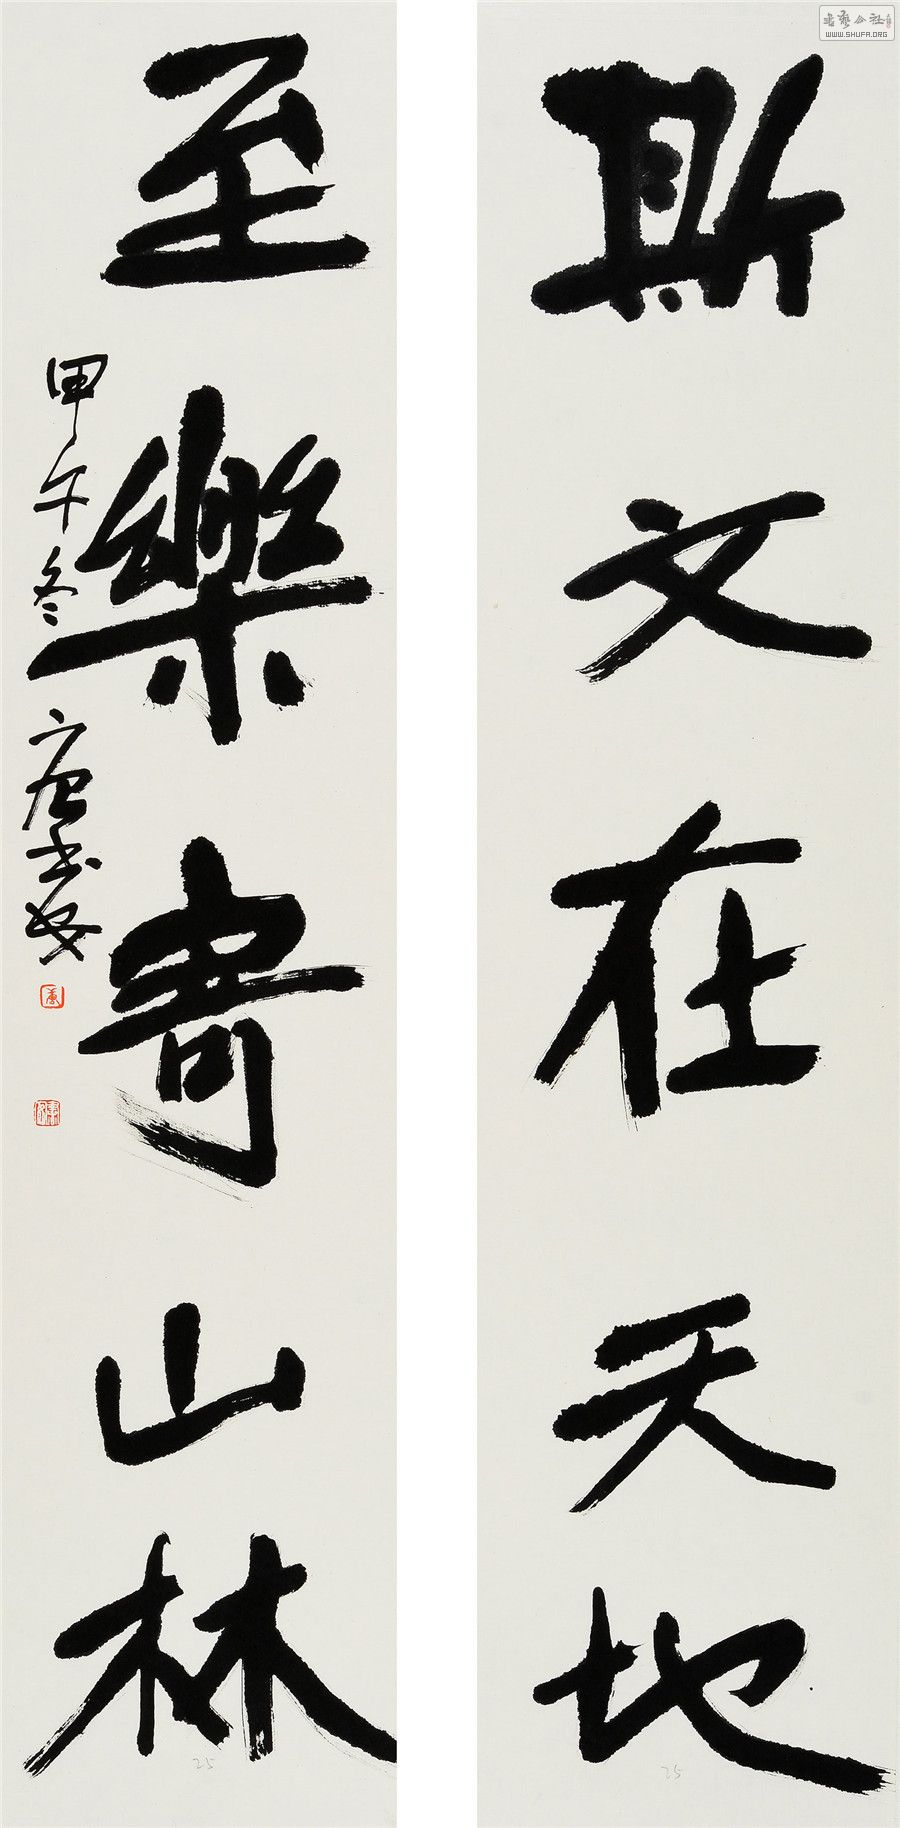 斯文在天地
至樂寄山林
甲午冬
唐書安
书艺公社
WWW.SHUFA.ORG
25
25